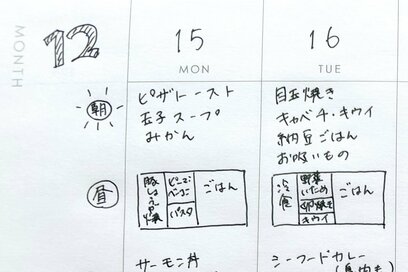 MONTH
12
15
MON
16
TUE
朝
ピザトースト
玉子スープ
みかん
目玉焼き
キャベチ・キウイ
納豆ごはん
お吸いもの
昼
豚しょうが焼
パスタ
ごはん
冷食
野菜
いため
卵焼き
キウイ
ごはん
サーモン丼
シーフードカレー